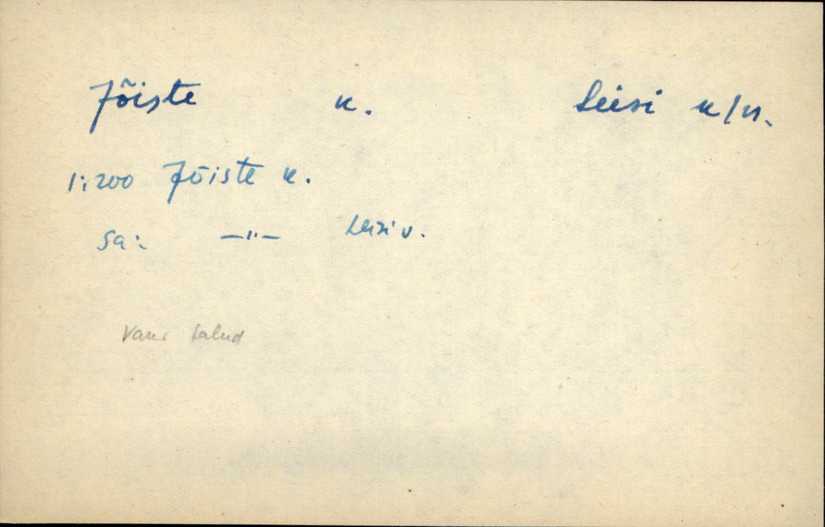 Jõiste k. Leisi k/n.
1:200 Jõiste k.
Sa: —"— Leisi v.
Vana talud